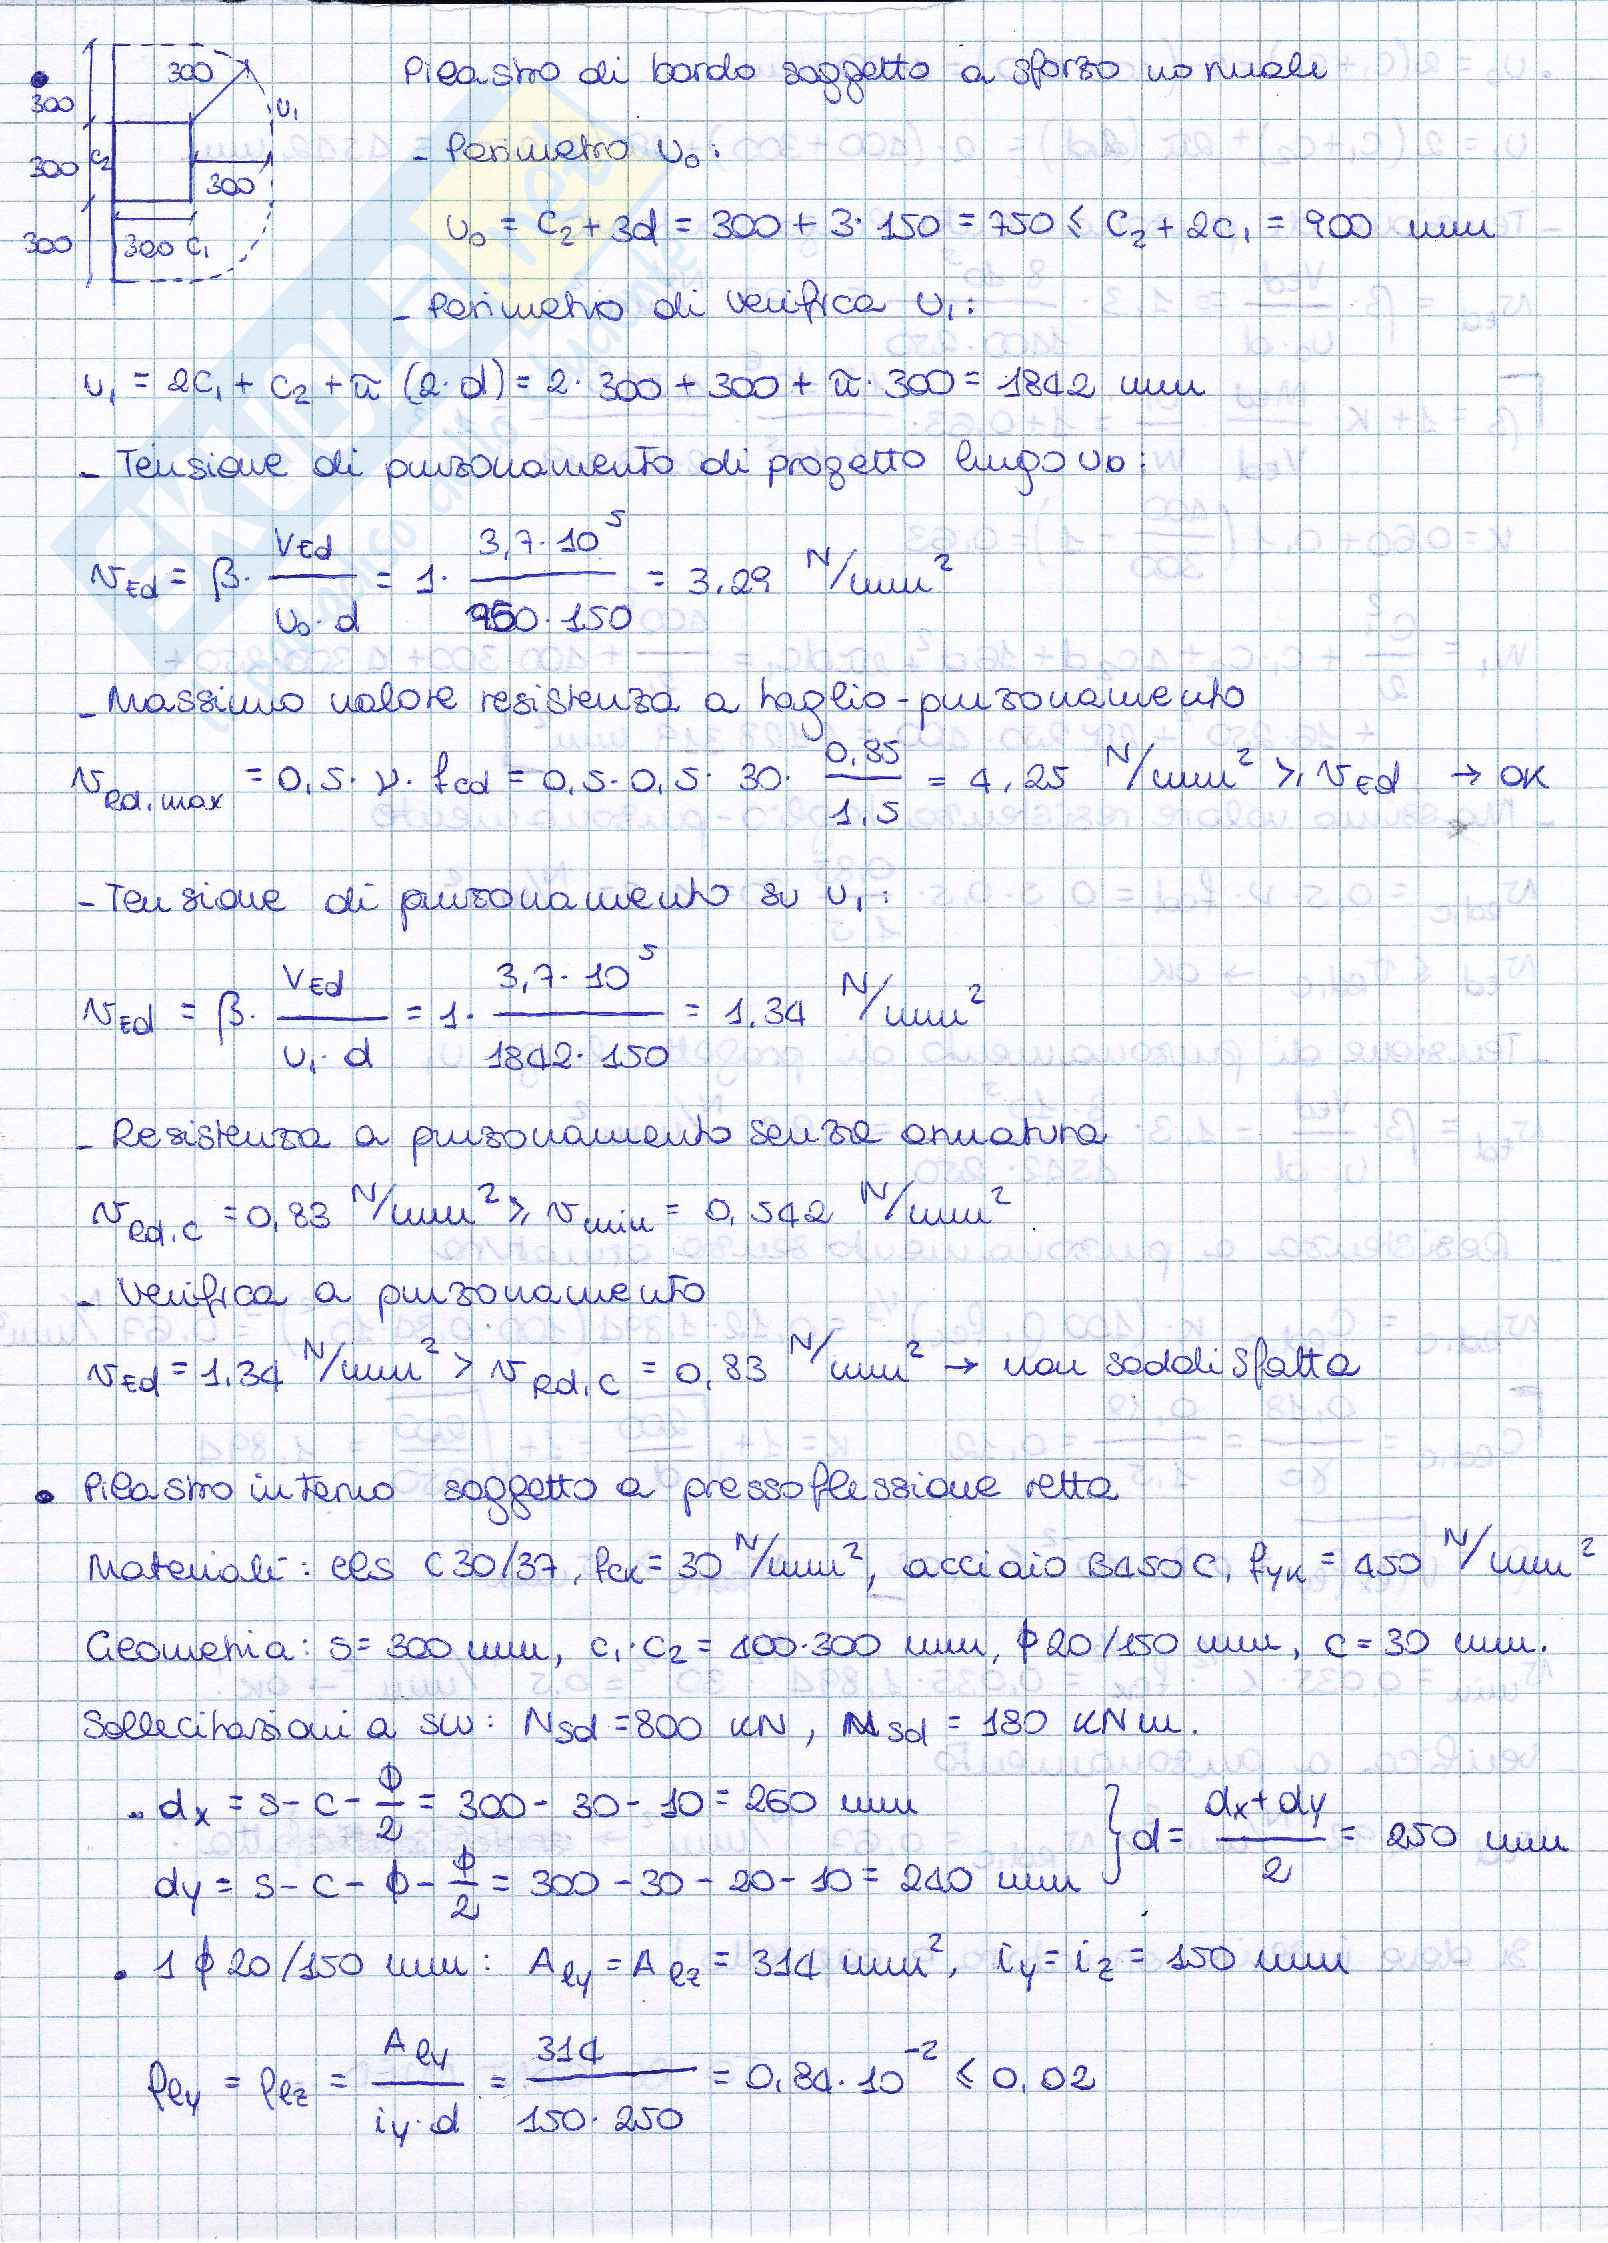 • Pilastro di bordo soggetto a sforzo normale
300
300
300
300
300
300 c₁
c₂
u₁
- Perimetro u₀:
u₀ = c₂ + 3d = 300 + 3·150 = 750 ≤ c₂ + 2c₁ = 900 mm
- Perimetro di verifica u₁:
u₁ = 2c₁ + c₂ + π (2·d) = 2·300 + 300 + π·300 = 1842 mm
- Tensione di punzonamento di progetto lungo u₀:
v_Ed = β · V_Ed / (u₀·d) = 1 · 3,7·10⁵ / (750·150) = 3.29 N/mm²
- Massimo valore resistenza a taglio-punzonamento
v_Rd,max = 0,5·ν·fcd = 0,5·0,5·30·0,85/1,5 = 4,25 N/mm² ≥ v_Ed → OK
- Tensione di punzonamento su u₁:
v_Ed = β · V_Ed / (u₁·d) = 1 · 3,7·10⁵ / (1842·150) = 1.34 N/mm²
- Resistenza a punzonamento senza armatura
v_Rd,c = 0,83 N/mm² ≥ v_min = 0,542 N/mm²
- Verifica a punzonamento
v_Ed = 1.34 N/mm² > v_Rd,c = 0,83 N/mm² → non soddisfatta
• Pilastro interno soggetto a pressoflessione retta
Materiali: cls C30/37, fck = 30 N/mm², acciaio B450C, fyk = 450 N/mm²
Geometria: s = 300 mm, c₁·c₂ = 400·300 mm, ϕ20/150 mm, c = 30 mm.
Sollecitazioni a SLU: N_Sd = 800 kN, M_Sd = 180 kNm.
• dx = s - c - ϕ/2 = 300 - 30 - 10 = 260 mm
dy = s - c - ϕ - ϕ/2 = 300 - 30 - 20 - 10 = 240 mm
} d = (dx + dy)/2 = 250 mm
• 1 ϕ 20/150 mm: A_ly = A_lz = 314 mm², iy = iz = 150 mm
ρ_ly = ρ_lz = A_ly / (iy·d) = 314 / (150·250) = 0,84·10⁻² ≤ 0,02